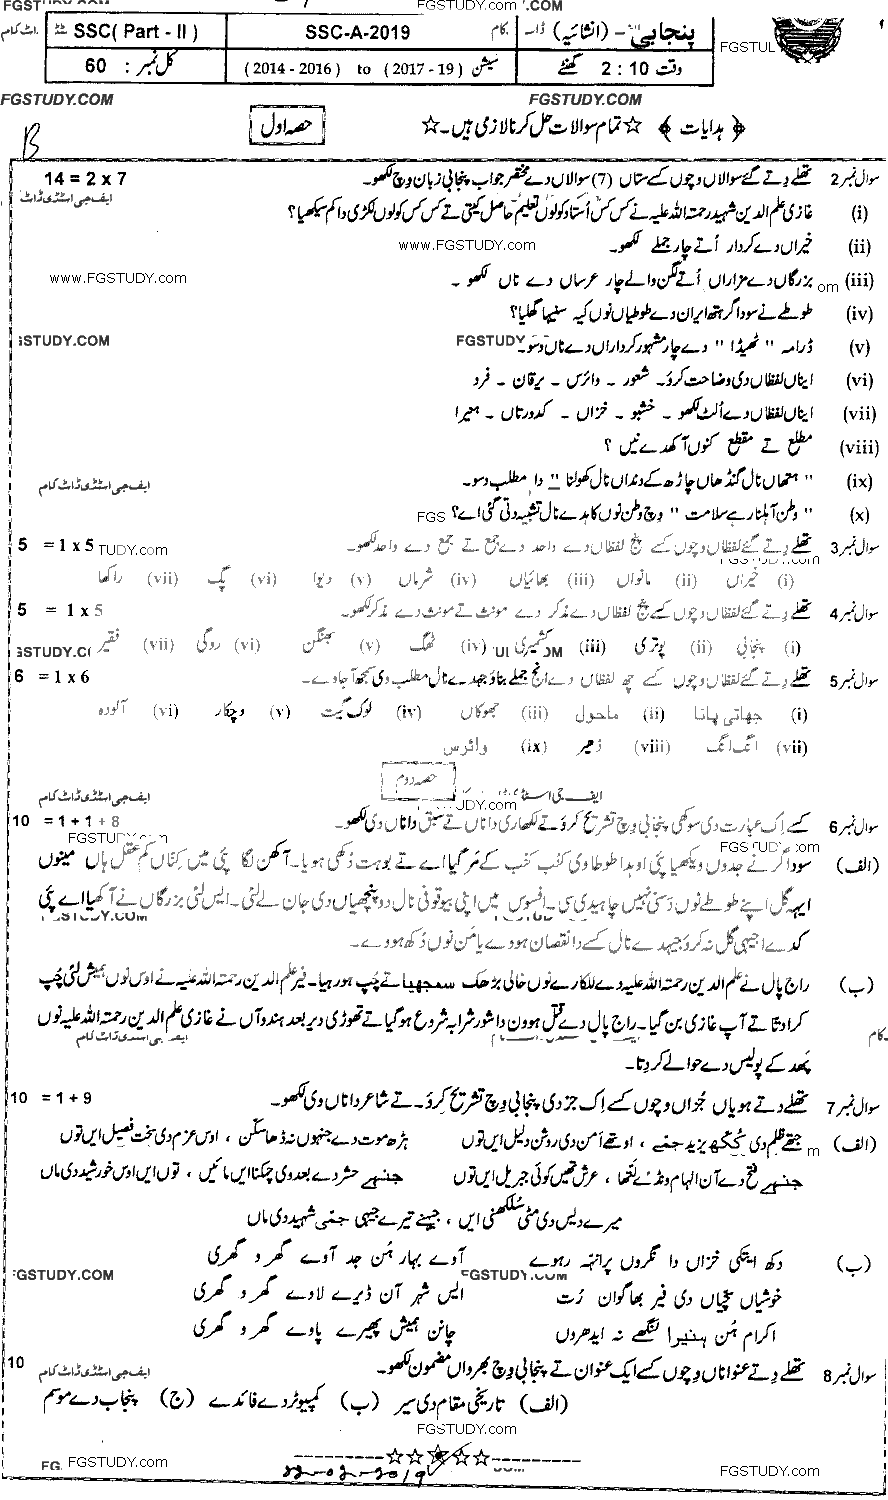 FGSTUDY.com
SSC( Part - II ) SSC-A-2019 پنجابی - (انشائیہ)
کل نمبر : 60 ( 2014 - 2016 ) to ( 2017 - 19 ) سیشن وقت 2 : 10 گھنٹے
FGSTUDY.COM FGSTUDY.COM
حصہ اول ﴿ ہدایات ﴾ ☆ تمام سوالات حل کرنا لازمی ہیں۔ ☆
B
سوال نمبر 2 تھلے دتے گئے سوالاں وچوں کسے ستاں (7) سوالاں دے مختصر جواب پنجابی زبان وچ لکھو۔ 14 = 2 x 7
(i) غازی علم الدین شہید رحمتہ اللہ علیہ نے کس کس اُستاد کولوں تعلیم حاصل کیتی تے کس کس کولوں لکڑی دا کم سیکھیا؟
(ii) خیراں دے کردار اُتے چار جملے لکھو۔
www.FGSTUDY.com
(iii) بزرگاں دے مزاراں اُتے لگن والے چار عرساں دے ناں لکھو ۔
www.FGSTUDY.com
(iv) طوطے نے سوداگر ہتھ ایران دے طوطیاں نوں کیہ سنیہا گھلیا؟
(v) ڈرامہ " ٹھیڈا " دے چار مشہور کرداراں دے ناں دسو۔
(vi) ایناں لفظاں دی وضاحت کرو۔ شعور - وائرس - یرقان - فرد
(vii) ایناں لفظاں دے اُلٹ لکھو - خشبو - خزاں - کدورتاں - ہنیرا
(viii) مطلع تے مقطع کنوں آکھدے نیں ؟
(ix) " ہتھاں نال گنڈھاں چاڑھ کے دنداں نال کھولنا " دا مطلب دسو۔ ایف جی اسٹڈی ڈاٹ کام
(x) " وطن آہلنا رہے سلامت " وچ وطن نوں کاہدے نال تشبیہ دتی گئی اے؟
سوال نمبر 3 تھلے دتے گئے لفظاں وچوں کسے پنج لفظاں دے واحد دے جمع تے جمع دے واحد لکھو۔ 5 = 1 x 5
(i) خیراں (ii) مانواں (iii) بھائیاں (iv) شرماں (v) دیوا (vi) پگ (vii) راکھا
سوال نمبر 4 تھلے دتے گئے لفظاں وچوں کسے پنج لفظاں دے مذکر دے مونث تے مونث دے مذکر لکھو۔ 5 = 1 x 5
(i) پنجابی (ii) پوتری (iii) کشمیری (iv) ٹھگ (v) بھنگن (vi) روگی (vii) فقیر
سوال نمبر 5 تھلے دتے گئے لفظاں وچوں کسے چھ لفظاں دے انج جملے بناؤ جیہدے نال مطلب دی سمجھ آ جاوے۔ 6 = 1 x 6
(i) جھاتی پانا (ii) ماحول (iii) جھوکاں (iv) لوک گیت (v) وچکار (vi) آلودہ
(vii) انگ انگ (viii) زہیر (ix) وائرس
حصہ دوم
ایف جی اسٹڈی ڈاٹ کام
سوال نمبر 6 کسے اِک عبارت دی سوکھی پنجابی وچ تشریح کرو تے لکھاری دا ناں تے سبق دا ناں وی لکھو۔ 10 = 1 + 1 + 8
(الف) سوداگر نے جدوں ویکھیا پئی اوہدا طوطا وی کنب کنب کے مر گیا اے تے بوہت دُکھی ہویا۔ آکھن لگا پئی میں کِناں کم عقل ہاں مینوں
ایہہ گل اپنے طوطے نوں دَسنی نہیں چاہیدی سی۔ افسوس میں اپنی بیوقوفی نال دو پنچھیاں دی جان لے لئی۔ ایس لئی بزرگاں نے آکھیا اے پئی
کدے اجیہی گل نہ کرو جیہدے نال کسے دا نقصان ہووے یا من نوں دُکھ ہووے۔
(ب) راج پال نے علم الدین رحمتہ اللہ علیہ دے للکارے نوں خالی بڑھک سمجھیا تے چپ ہو رہیا۔ فیر علم الدین رحمتہ اللہ علیہ نے اوس نوں ہمیش لئی چپ
کرا دتا تے آپ غازی بن گیا۔ راج پال دے قتل ہوون دا شور شرابہ شروع ہو گیا تے تھوڑی دیر بعد ہندوآں نے غازی علم الدین رحمتہ اللہ علیہ نوں
پھد کے پولیس دے حوالے کر دتا۔
سوال نمبر 7 تھلے دتے ہویاں جُزاں وچوں کسے اِک جز دی پنجابی وچ تشریح کرو۔ تے شاعر دا ناں وی لکھو۔ 10 = 1 + 9
(الف) جتھے ظلم دی کُکھ یزید جمے ، اوتھے اَمن دی روشن دلیل ایں توں ہڑھ موت دے جنہوں نہ ڈھا سکن ، اوس عزم دی سخت فصیل ایں توں
جنہے فتح دے آن الہام ونڈے لکھا ، عرش تھیں کوئی جبریل ایں توں جنہے حشر دے بعد وی چمکنا ایں مائیں ، توں ایں اوس خورشید دی ماں
میرے دیس دی مٹی سُلکھنی ایں ، جیہنے تیرے جیہی جمی شہید دی ماں
(ب) دکھ ایتکی خزاں دا نگروں پرانہہ رہوے آوے بہار ہُن جد آوے گھر و گھری
FGSTUDY.COM
خوشیاں سچیاں دی فیر بھاگوان رُت ایس شہر آن ڈیرے لاوے گھر و گھری
اکرام ہُن ہنیرا لنگھے نہ ایدھروں چانن ہمیش پھیرے پاوے گھر و گھری
سوال نمبر 8 تھلے دتے عنواناں وچوں کسے ایک عنوان تے پنجابی وچ بھرواں مضمون لکھو۔ 10
(الف) تاریخی مقام دی سیر (ب) کمپیوٹر دے فائدے (ج) پنجاب دے موسم
FGSTUDY.com
FG. FGSTUDY.com 22-02-2019 FGSTUDY.com